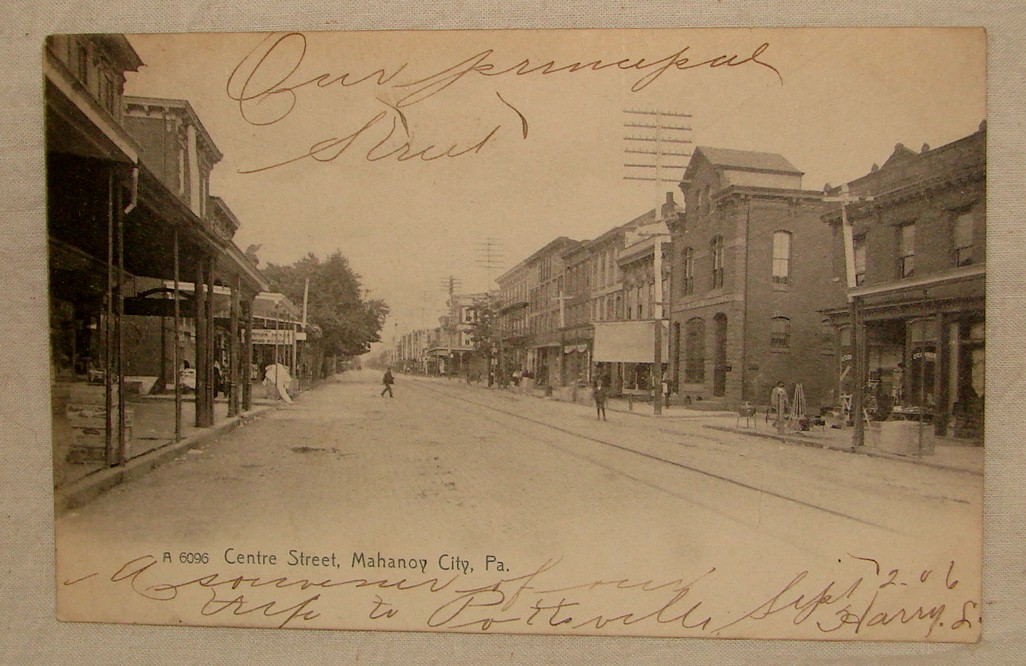 Our principal
Street
A 6096 Centre Street, Mahanoy City, Pa.
A souvenir of our
trip to Pottsville Sept 2-06
Harry. S.